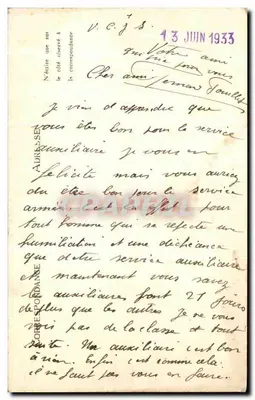 V.C.J.S.
13 JUIN 1933
Votre ami
Cher ami
Je viens d'apprendre que
vous êtes bon pour le service
auxiliaire je vous en
felicite mais vous auriez
du être bon pour le service
armé. C'est en effet pour
tout homme qui se respecte une
humiliation et une déchéance
que d'etre service auxiliaire
et maintenant vous savez
les auxiliaires font 21 jours
de plus que les autres. Je ne vous
vois pas de la classe et tout
suite. Un auxiliaire c'est bon
à rien. Enfin c'est comme cela
il ne faut pas vous en faire.
N'écrire que sur
le côté réservé à
la correspondance
ADRESSE
CORRESPONDANCE